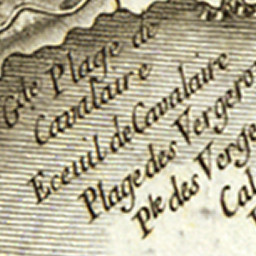 Gde Plage de
Cavalaire
Eceuil de Cavalaire
Plage des Vergero
Pte des Verge
Cal